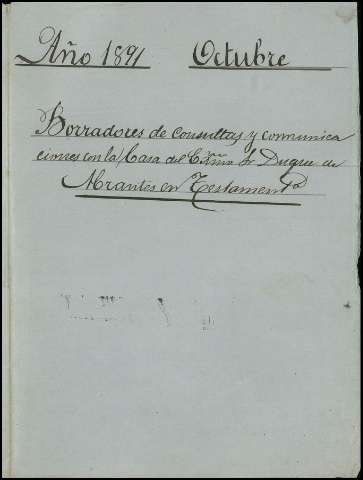 Año 1891 Octubre
Borradores de Consultas y comunica
ciones con la Casa del Exmo Sr Duque de
Abrantes en Testament.ª